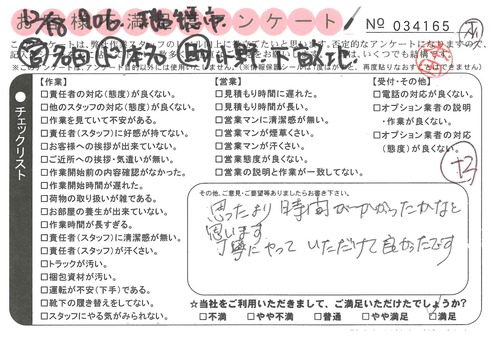 お客様満足アンケート
No 034165
チェックリスト
【作業】
□責任者の対応(態度)が良くない。
□他のスタッフの対応(態度)が良くない。
□作業を見ていて不安がある。
□責任者(スタッフ)に好感が持てない。
□お客様への挨拶が出来ていない。
□ご近所への挨拶・気遣いが無い。
□作業開始前の内容確認がなかった。
□作業開始時間が遅れた。
□荷物の取り扱いが雑である。
□お部屋の養生が出来ていない。
□作業時間が長すぎる。
□責任者(スタッフ)に清潔感が無い。
□責任者(スタッフ)が汗くさい。
□トラックが汚い。
□梱包資材が汚い。
□運転が不安(下手)である。
□靴下の履き替えをしてない。
□スタッフにやる気がみられない。
【営業】
□見積もり時間に遅れた。
□見積もり時間が長い。
□営業マンに清潔感が無い。
□営業マンが煙草くさい。
□営業マンが汗くさい。
□営業態度が良くない。
□営業の説明と作業が一致してない。
【受付・その他】
□電話の対応が良くない。
□オプション業者の説明
・作業が良くない。
□オプション業者の対応
(態度)が良くない。
その他、ご意見・ご要望等ありましたらお書き下さい。
思ったより時間がかかったかなと
思います
丁寧にやっていただけて良かったです
☆当社をご利用いただきまして、ご満足いただけたでしょうか?
□不満 □やや不満 □普通 □やや満足 □満足